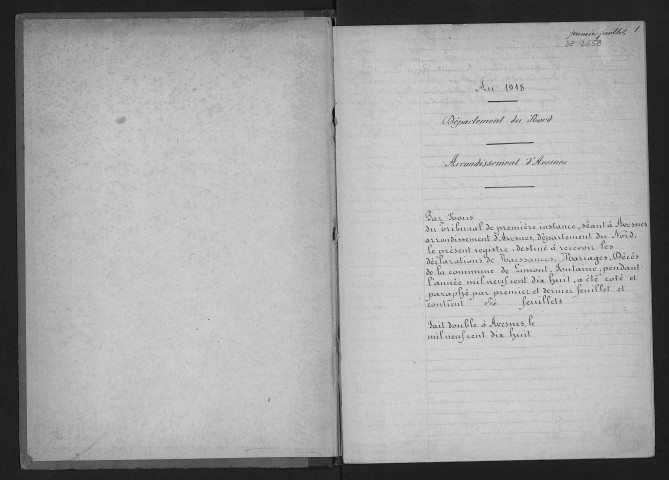 premier feuillet 1
3E 9658
An 1918
Département du Nord
Arrondissement d'Avesnes
Par Nous
du Tribunal de première instance, séant à Avesnes
arrondissement d'Avesnes, département du Nord,
le présent registre, destiné à recevoir les
déclarations de Naissances, Mariages, Décès
de la commune de Limont-Fontaine, pendant
l'année mil neuf cent dix huit, a été coté et
paraphé par premier et dernier feuillet et
contient feuillets
Fait double à Avesnes, le
mil neuf cent dix huit